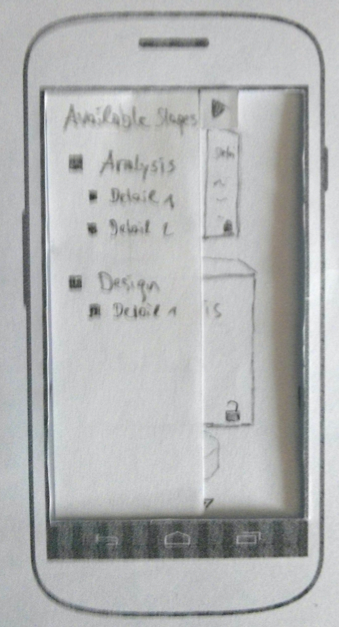 Available Stages
Analysis
Detail 1
Detail 2
Design
Detail 1
is